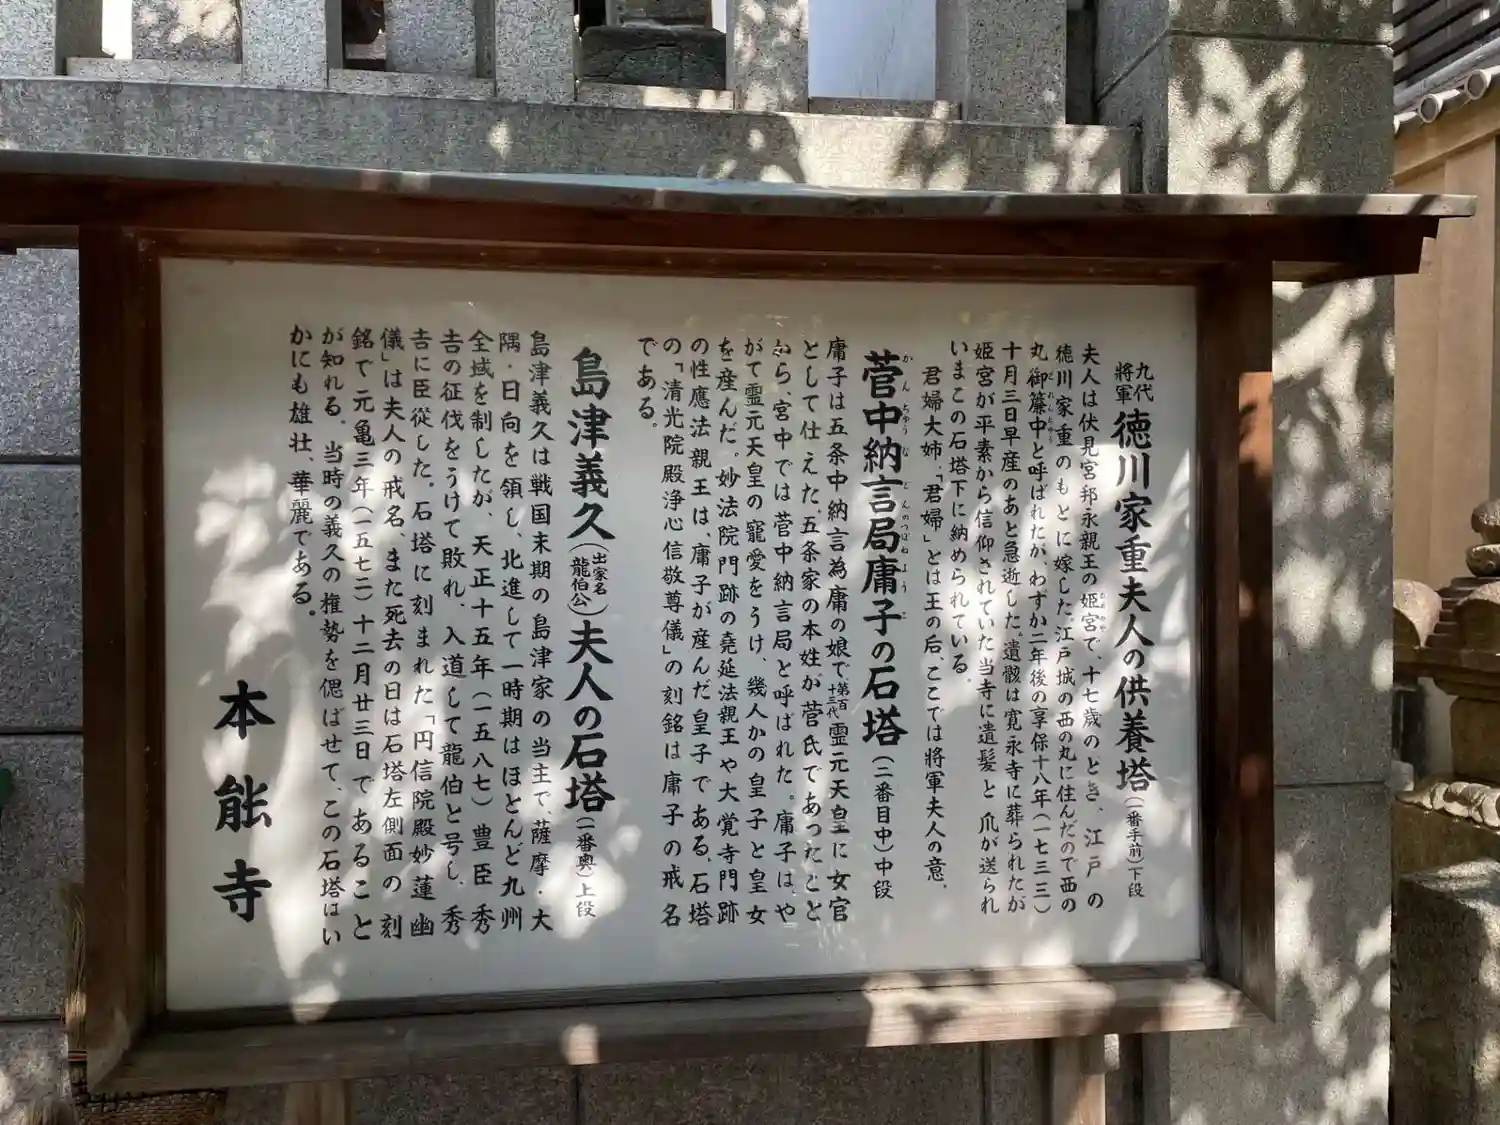 九代將軍徳川家重夫人の供養塔(一番手前)下段
夫人は伏見宮邦永親王の姫宮で、十七歳のとき、江戸の
徳川家重のもとに嫁した。江戸城の西の丸に住んだので西の
丸御簾中と呼ばれたが、わずか二年後の享保十八年(一七三三)
十月三日早産のあと急逝した。遺骸は寛永寺に葬られたが
姫宮が平素から信仰されていた当寺に遺髪と爪が送られ
いまこの石塔下に納められている。
君婦大姉.「君婦」とは王の后、ここでは將軍夫人の意、
菅中納言局庸子の石塔(二番目中)中段
かんちゅうなごんのつぼねようこ
庸子は五条中納言為庸の娘で第百十三代霊元天皇に女官
として仕えた。五条家の本姓が菅氏であったこと
から、宮中では菅中納言局と呼ばれた。庸子はや
がて霊元天皇の寵愛をうけ、幾人かの皇子と皇女
を産んだ。妙法院門跡の堯延法親王や大覚寺門跡
の性應法親王は、庸子が産んだ皇子である、石塔
の「清光院殿浄心信敬尊儀」の刻銘は庸子の戒名
である。
島津義久(出家名龍伯公)夫人の石塔(一番奥)上段
島津義久は戦国末期の島津家の当主で、薩摩・大
隅・日向を領し、北進して一時期はほとんど九州
全域を制したが、天正十五年(一五八七)豊臣秀
吉の征伐をうけて敗れ、入道して龍伯と号し、秀
吉に臣從した。石塔に刻まれた「円信院殿妙蓮幽
儀」は夫人の戒名、また死去の日は石塔左側面の刻
銘で元亀三年(一五七二)十二月廿三日であること
が知れる。当時の義久の権勢を偲ばせて、この石塔はい
かにも雄壮、華麗である。
本能寺